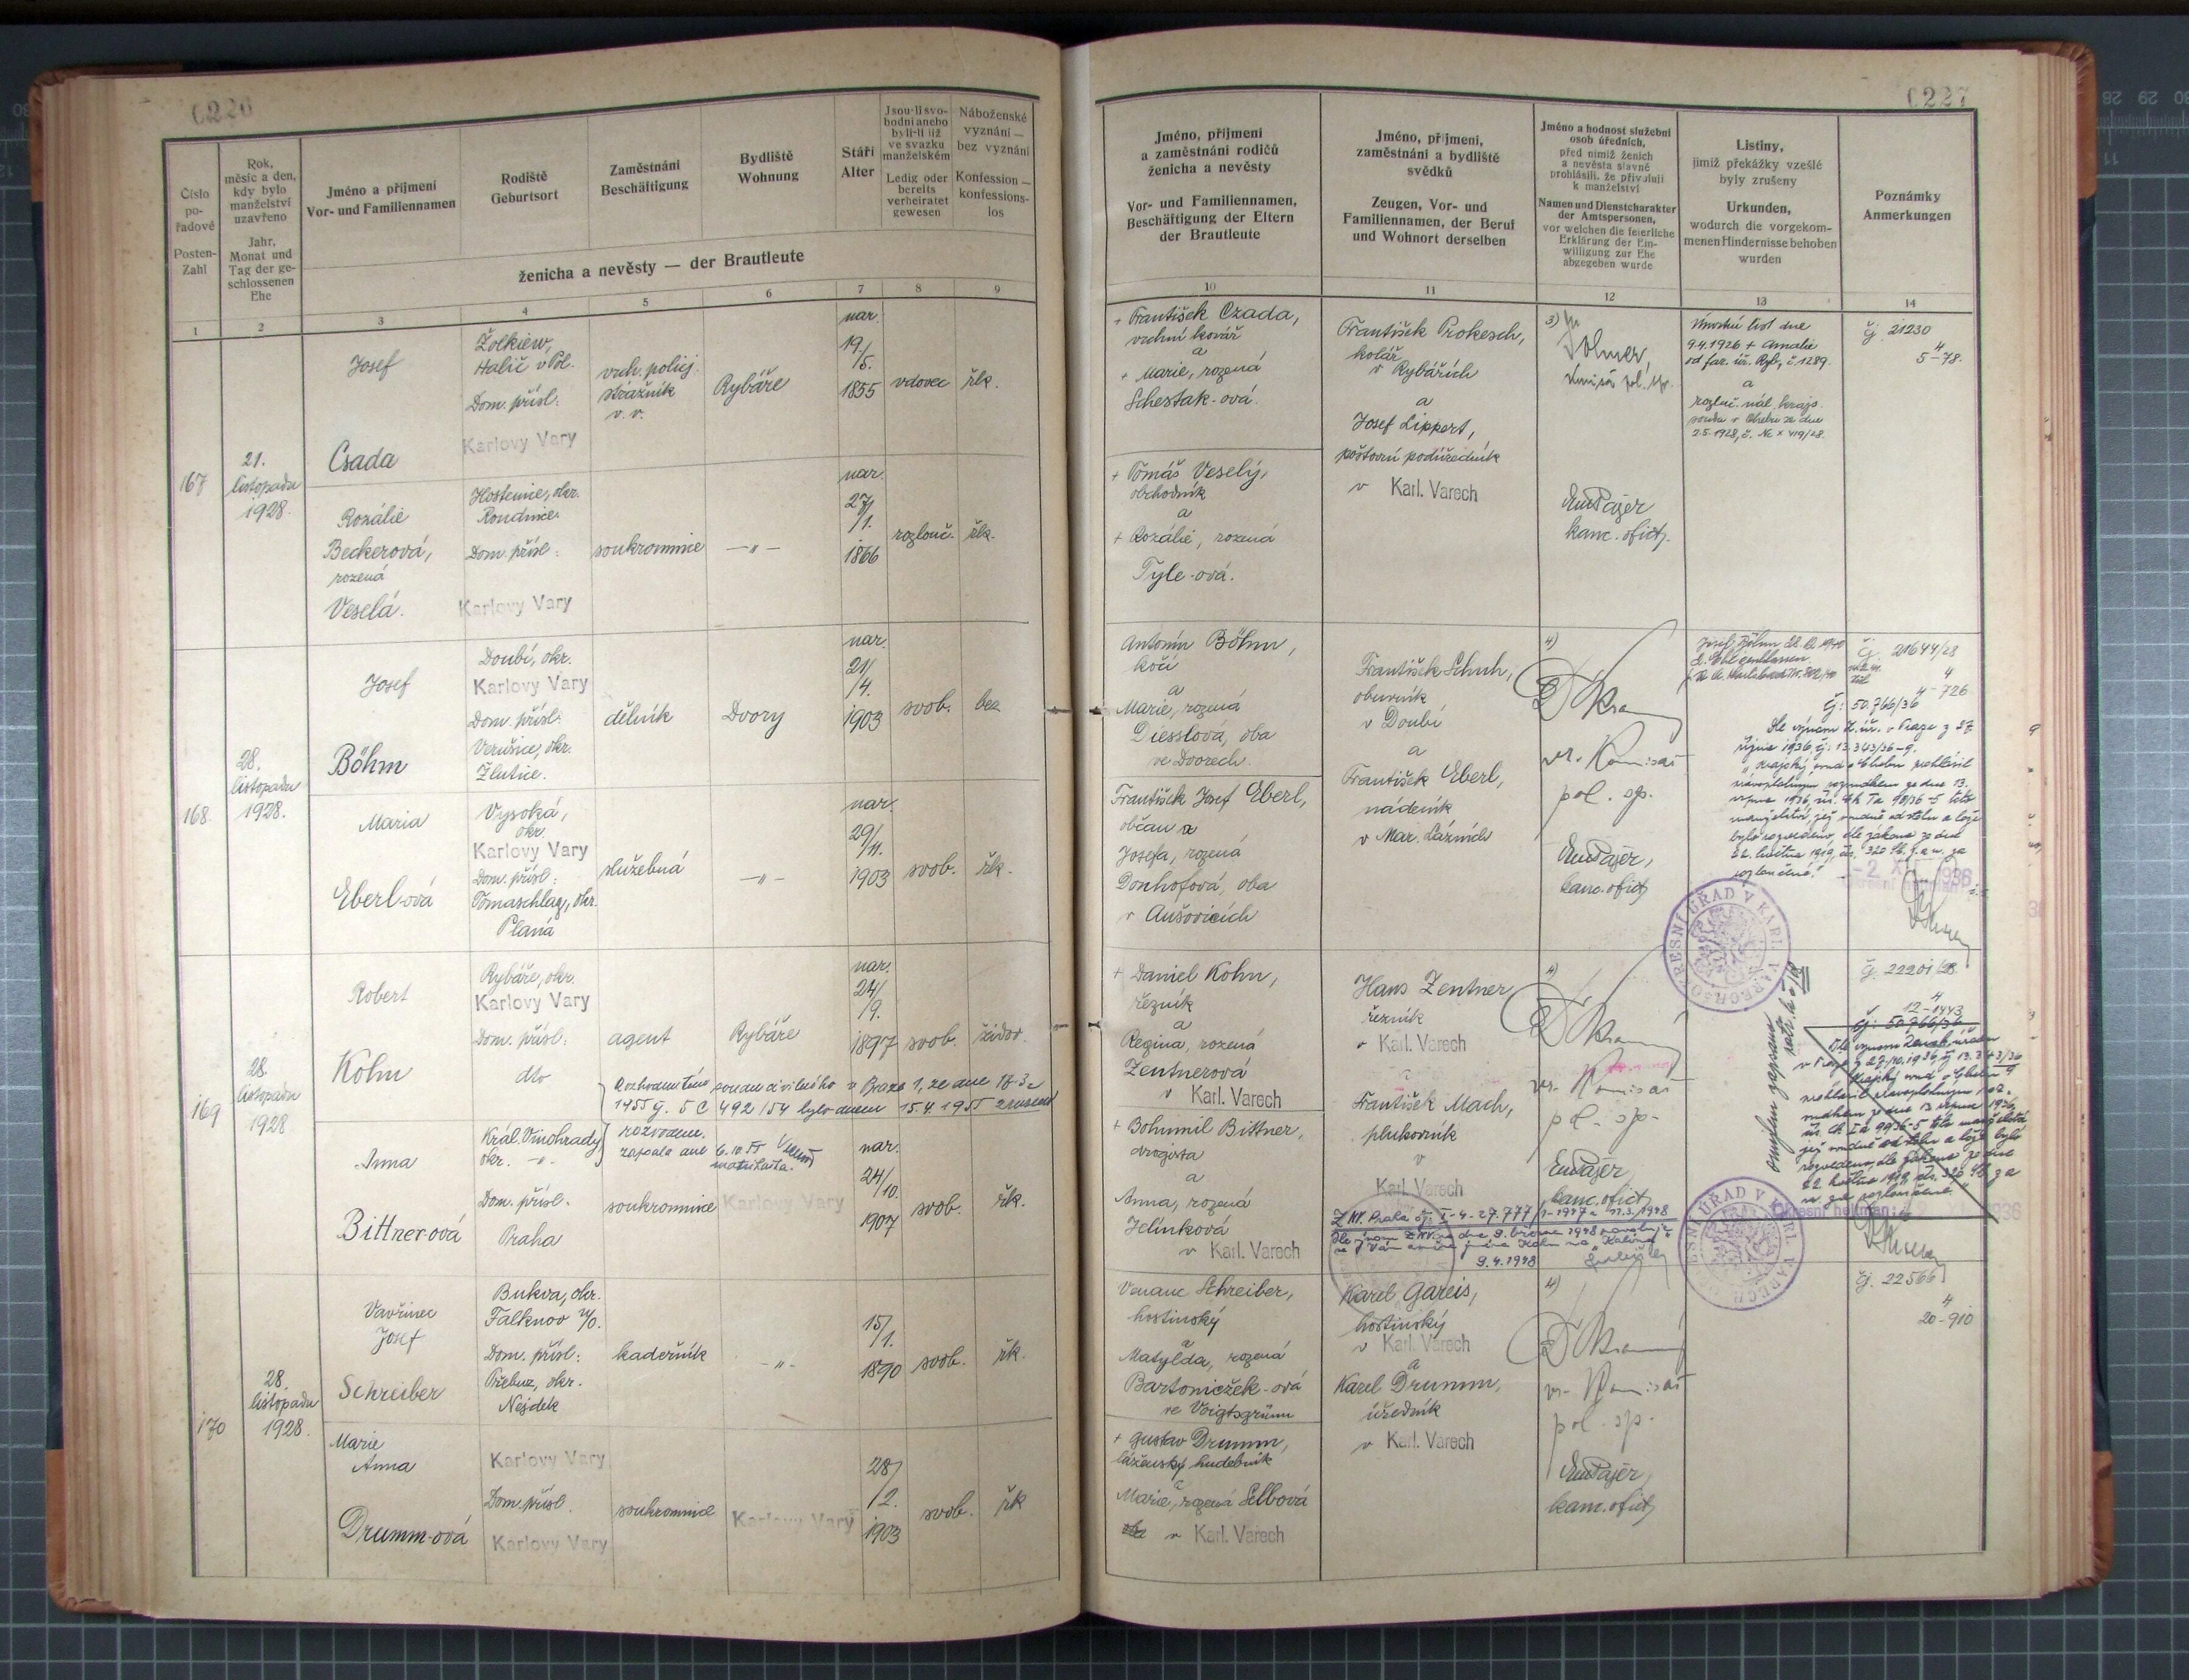 0226
Číslo
po-
řadové
Posten-
Zahl
1
Rok,
měsíc a den,
kdy bylo
manželství
uzavřeno
Jahr,
Monat und
Tag der ge-
schlossenen
Ehe
2
Jméno a příjmení
Vor- und Familiennamen
3
Rodiště
Geburtsort
4
Zaměstnání
Beschäftigung
5
Bydliště
Wohnung
6
Stáří
Alter
7
Jsou-li svo-
bodni aneho
byli-li již
ve svazku
manželském
Ledig oder
bereits
verheiratet
gewesen
8
Náboženské
vyznání —
bez vyznání
Konfession —
konfessions-
los
9
ženicha a nevěsty — der Brautleute
167
21.
listopadu
1928.
Josef
Csada
Žolkiew,
Halič v Pol.
Dom. přísl:
Karlovy Vary
vrch. policij.
strážník
v. v.
Rybáře
nar.
19/
/5.
1855
vdovec
řk.
Rozálie
Beckerová,
rozená
Veselá.
Hostenice, okr.
Roudnice
Dom. přísl:
Karlovy Vary
soukromnice
—„—
nar.
27/
/1.
1866
rozlouč.
řk.
168.
28.
listopadu
1928.
Josef
Böhm
Doubí, okr.
Karlovy Vary
Dom. přísl:
Verušice, okr.
Žlutice.
dělník
Dvory
nar.
21/
/4.
1903
svob.
bez
Maria
Eberl-ová
Vysoká,
okr.
Karlovy Vary
Dom. přísl:
Tomaschlag, okr.
Planá
služebná
—„—
nar.
29/
/11.
1903
svob.
řk.
169
28.
listopadu
1928
Robert
Kohn
Rybáře, okr.
Karlovy Vary
Dom. přísl:
dto
agent
Rybáře
nar.
24/
/9.
1897
svob.
židov.
Rozhodnutím soudu civilního v Praze 1, ze dne 18-3-
1955 j. 5 C 492/54 bylo dnem 15.4.1955 zrušeno
rozvodem.
zapsala dne 6.10.55
matrikářka.
Anna
Bittner-ová
Král. Vinohrady
okr. -„-
Dom. přísl.
Praha
soukromnice
Karlovy Vary
nar.
24/
/10.
1907
svob.
řk.
170
28.
listopadu
1928.
Vavřinec
Josef
Schreiber
Bukva, okr.
Falknov n/O.
Dom. přísl:
Přebuz, okr.
Nejdek
kadeřník
-„-
15/
/1.
1890
svob.
řk.
Marie
Anna
Drumm-ová
Karlovy Vary
Dom. přísl.
Karlovy Vary
soukromnice
Karlovy Vary
28/
/2.
1903
svob.
řk
0227
Jméno, příjmení
a zaměstnání rodičů
ženicha a nevěsty
Vor- und Familiennamen,
Beschäftigung der Eltern
der Brautleute
10
Jméno, příjmení,
zaměstnání a bydliště
svědků
Zeugen, Vor- und
Familiennamen, der Beruf
und Wohnort derselben
11
Jméno a hodnost služební
osob úředních,
před nimiž ženich
a nevěsta slavně
prohlásili, že přivolují
k manželství
Namen und Dienstcharakter
der Amtspersonen,
vor welchen die feierliche
Erklärung der Ein-
willigung zur Ehe
abgegeben wurde
12
Listiny,
jimiž překážky vzešlé
byly zrušeny
Urkunden,
wodurch die vorgekom-
menen Hindernisse behoben
wurden
13
Poznámky
Anmerkungen
14
+ František Czada,
vrchní kovář
a
+ Marie, rozená
Schestak-ová.
František Prokesch,
kolář
v Rybářích
a
Josef Lippert,
poštovní podúředník
v Karl. Varech
3)
Úmrtní list dne
9.4.1926 + Amalie
od far. úř. Ryb. č. 1289.
a
rozluč. nál. krajs.
soudu v Chebu ze dne
2.5.1928, č. Nc X 419/28.
čj. 21230
4
5-78.
+ Tomáš Veselý,
obchodník
a
+ Rozálie, rozená
Tyle-ová.
Em Pajer
kanc. ofic.
Antonín Böhm,
kočí
a
Marie, rozená
Diesslová, oba
ve Dvorech.
František Schuh,
obuvník
v Doubí
a
František Eberl,
nádeník
v Mar. Lázních
4)
vr. Komisař
pol. sp.
Em Pajer,
kanc. ofic.
čj. 21644/28
4
4-726
čj: 50.766/36
Dle výnosu z. úř. v Praze z 27.
října 1936, čj: 13.343/36-9.
„Krajský soud v Chebu prohlásil
právoplatným rozsudkem ze dne 13.
srpna 1936,
manželství, jež soudně od stolu a lože
bylo rozvedeno dle zákona ze dne
22. května 1919, čís. 320 Sb. z. a n. za
rozloučené."
-2 XI 1936
OKRESNÍ ÚŘAD V KARL. VARECH
František Josef Eberl,
občan a
Josefa, rozená
Donhofová, oba
v Aušovicích
+ Daniel Kohn,
řezník
a
Regina, rozená
Zentnerová
v Karl. Varech
Hans Zentner
řezník
v Karl. Varech
František Mach,
plukovník
v
Karl. Varech
4)
vr. Komisař
pol. sp.
Em Pajer,
kanc. ofic.
čj. 22201/28.
4
12-1443
čj: 50766/36
Dle výnosu Zemsk. úřadu
v Praze z 27./10.1936, čj 13.343/36
Krajský soud v Chebu
prohlásil právoplatným roz-
sudkem ze dne 13 srpna 1936,
jež soudně od stolu a lože bylo
rozvedeno, dle zákona ze dne
22. května 1919, čís. 320 Sb. z a
n. za rozloučené."
omylem zapsáno
Okresní hejtman:
OKRESNÍ ÚŘAD V KARL. VARECH
+ Bohumil Bittner,
drogista
a
Anna, rozená
Jelínková
v Karl. Varech
ZNV. Praha
9.4.1948
Venanc Schreiber,
hostinský
a
Matylda, rozená
Bartoniczek-ová
ve Voigtsgrünu
Karel Gareis,
hostinský
v Karl. Varech
a
Karel Drumm,
úředník
v Karl. Varech
4)
vr. Komisař
pol. sp.
Em Pajer,
kanc. ofic.
čj. 22566
4
20-910
+ Gustav Drumm,
lázeňský hudebník
a
Marie, rozená Selbová
v Karl. Varech